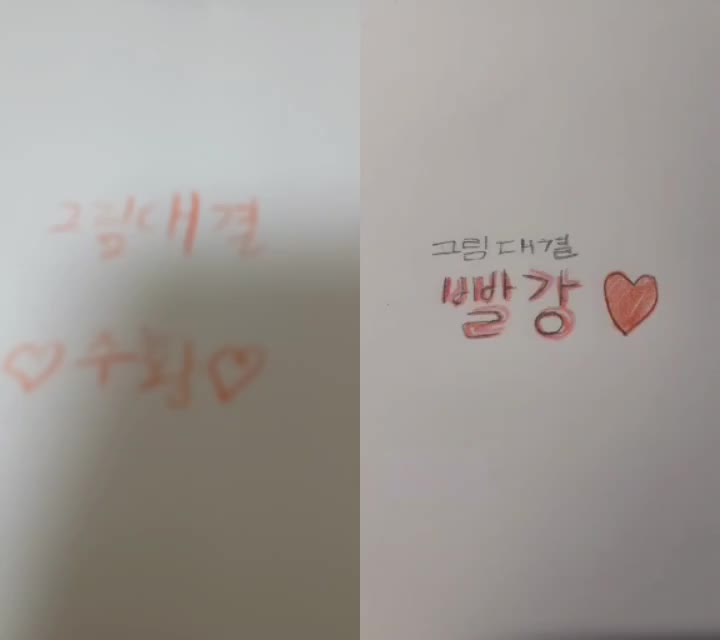 그림대결
♡수팀♡
그림대결
빨강